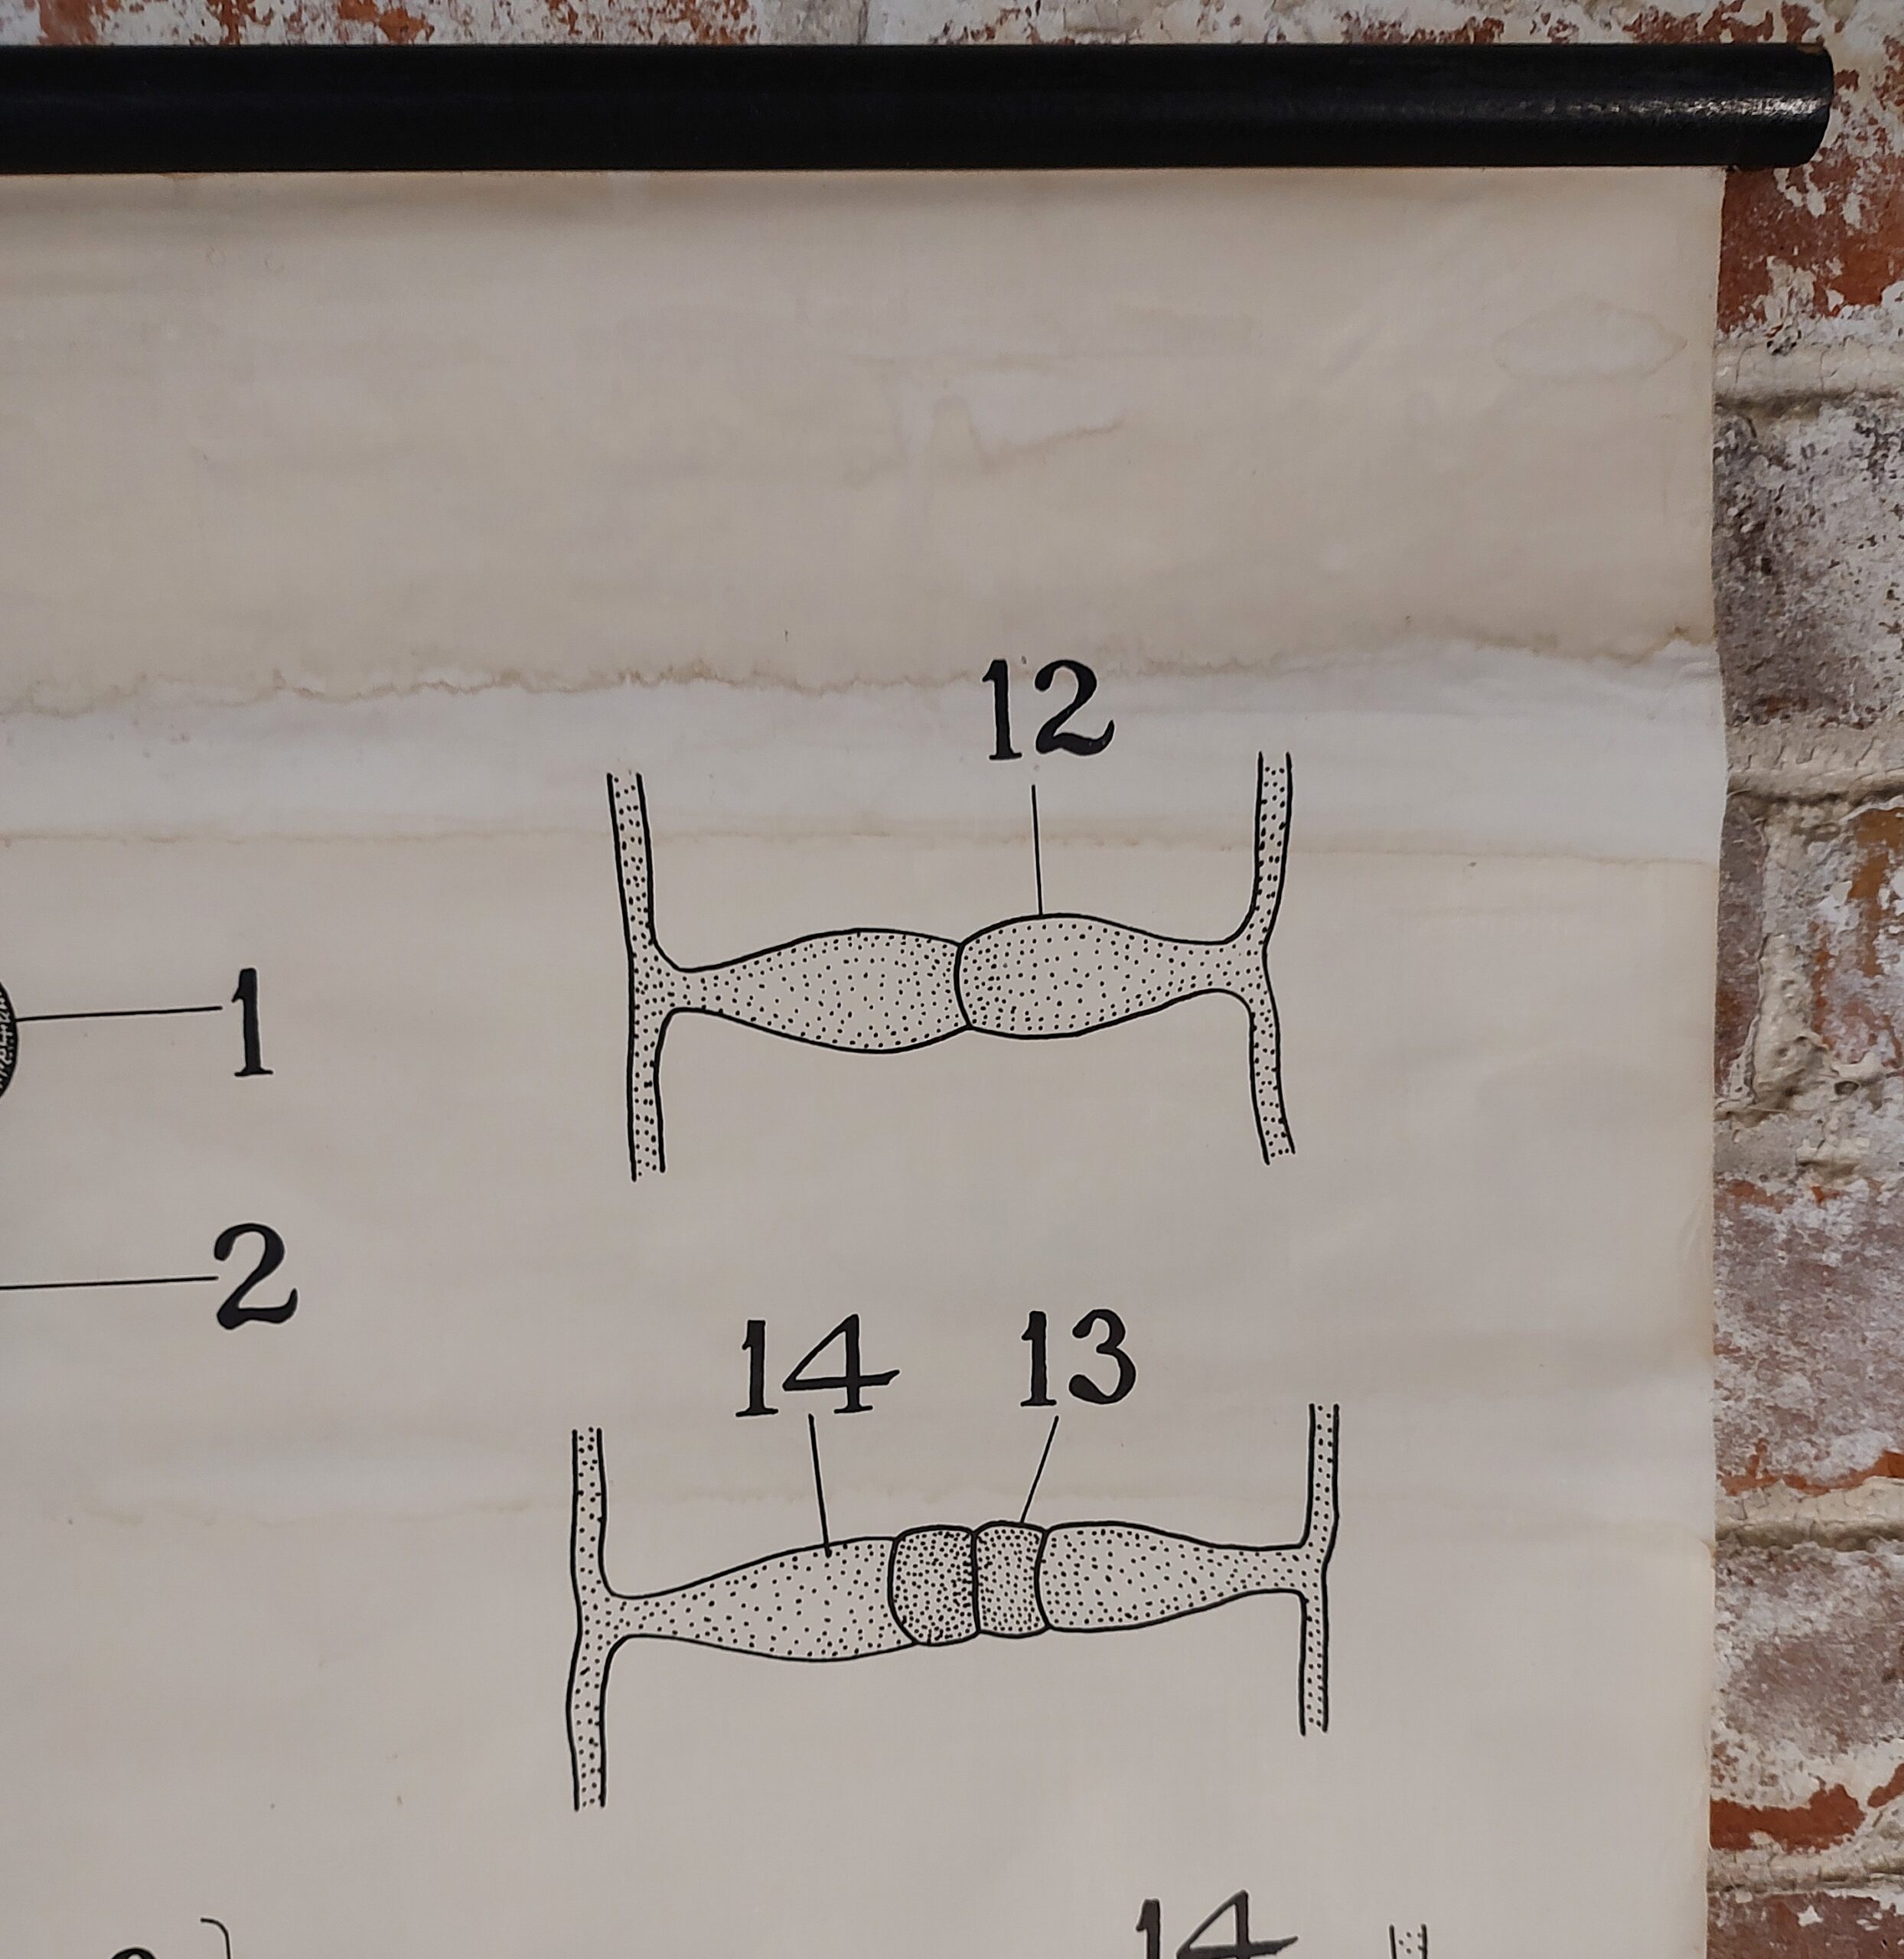 12
1
2
14 13
14